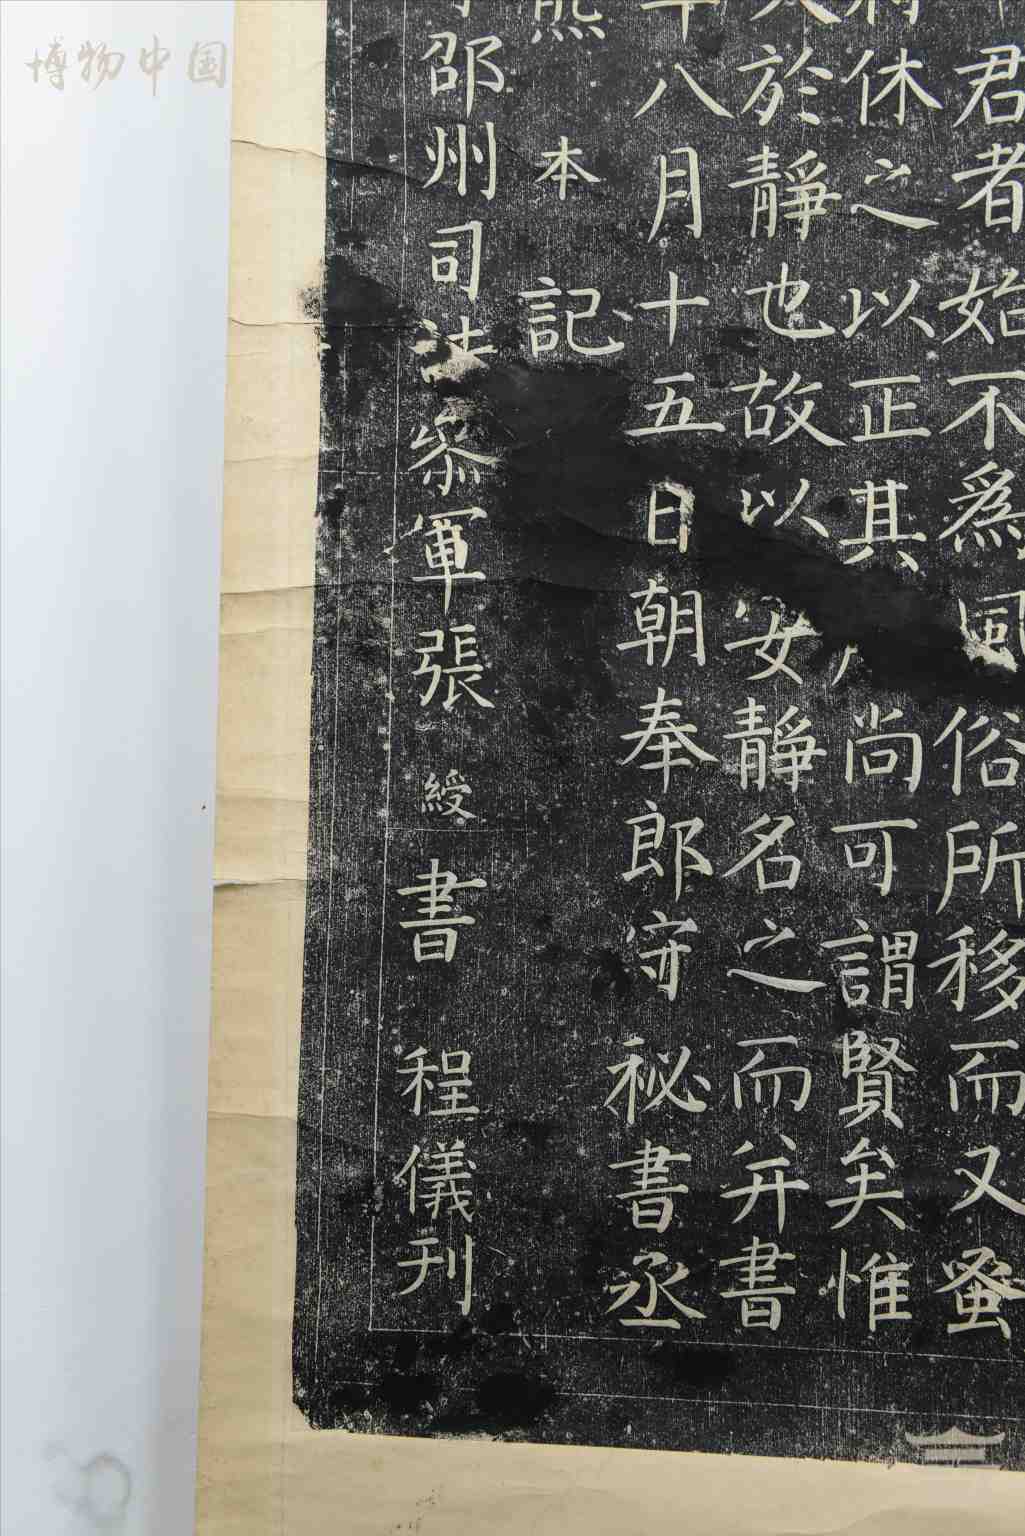 君者始不為風俗所移而又蚤
休之以正其尚可謂賢矣惟
於靜也故以安靜名之而并書
八月十五日朝奉郎守秘書丞
熊本記
邵州司法叅軍張綬書 程儀刊
博物中国